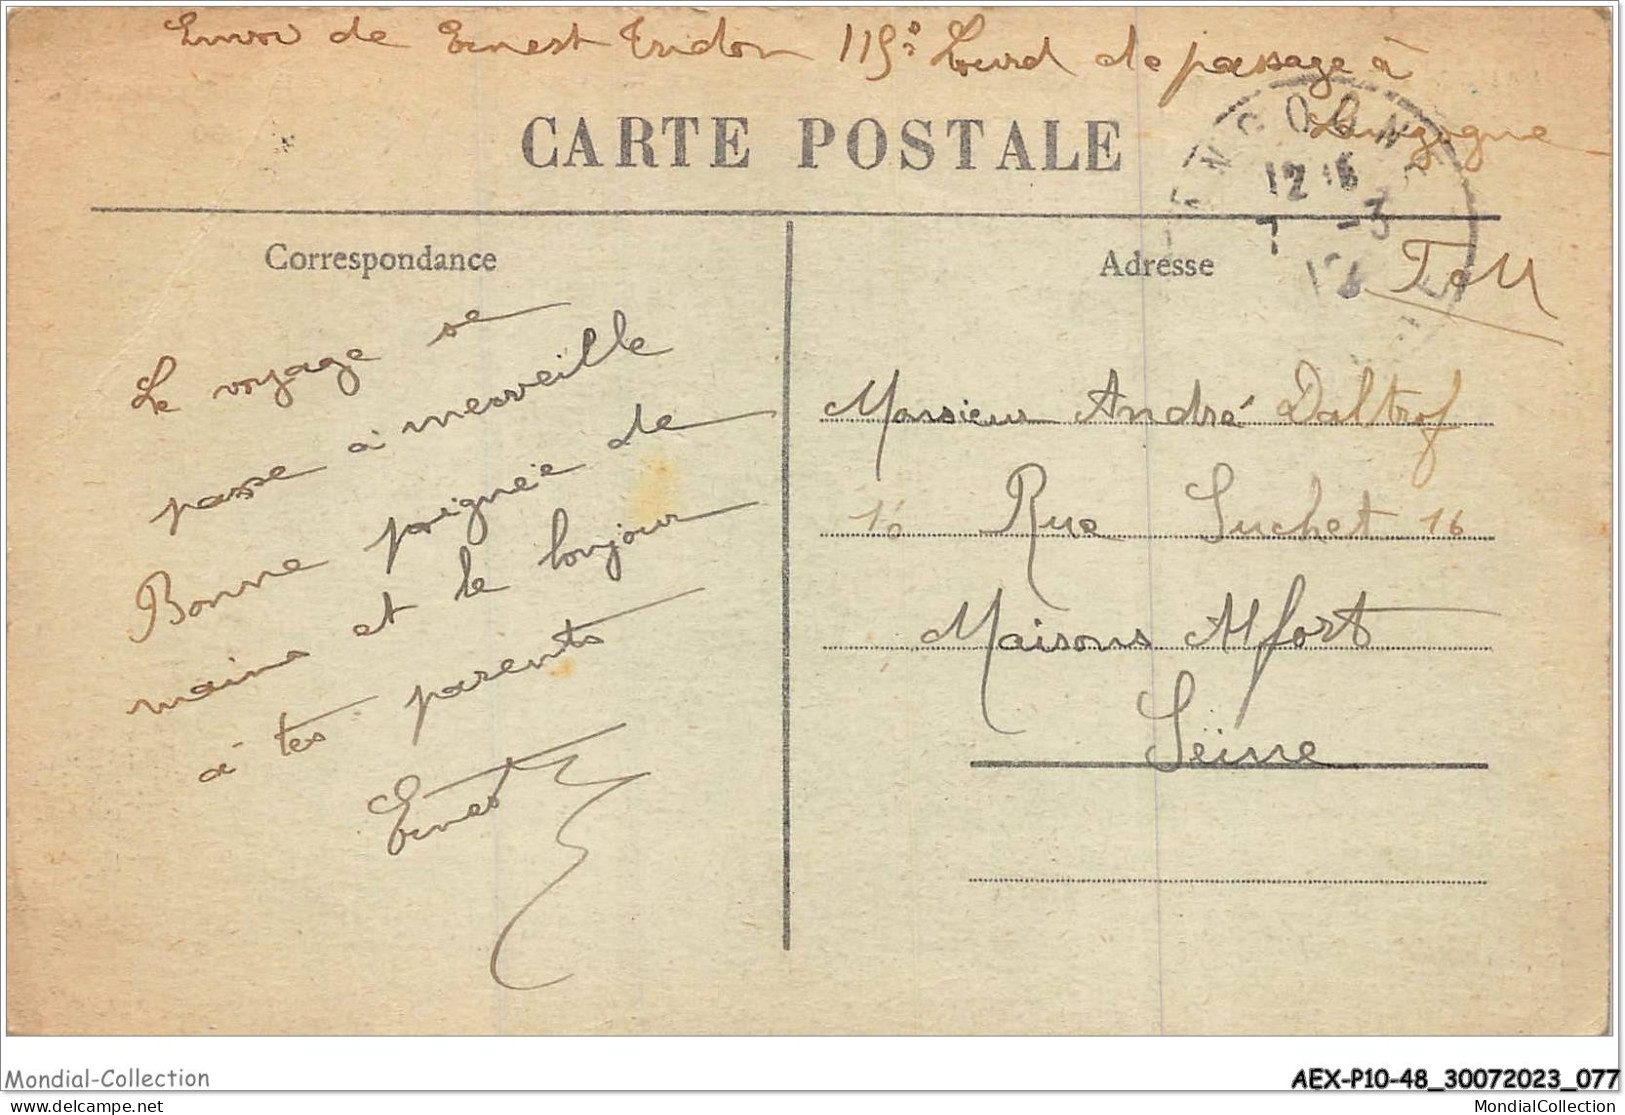 Envoi de Ernest Tridon 115e Lourd de passage à
Langogne
CARTE POSTALE
LANGOGNE
12 15
7 -3
Correspondance
Adresse
F M
Le voyage se
passe à merveille
Bonne poignée de
mains et le bonjour
à tes parents
Ernest
Monsieur André Daltrof
16 Rue Suchet 16
Maisons Alfort
Seine
Mondial-Collection
AEX-P10-48_30072023_077
www.delcampe.net
MondialCollection